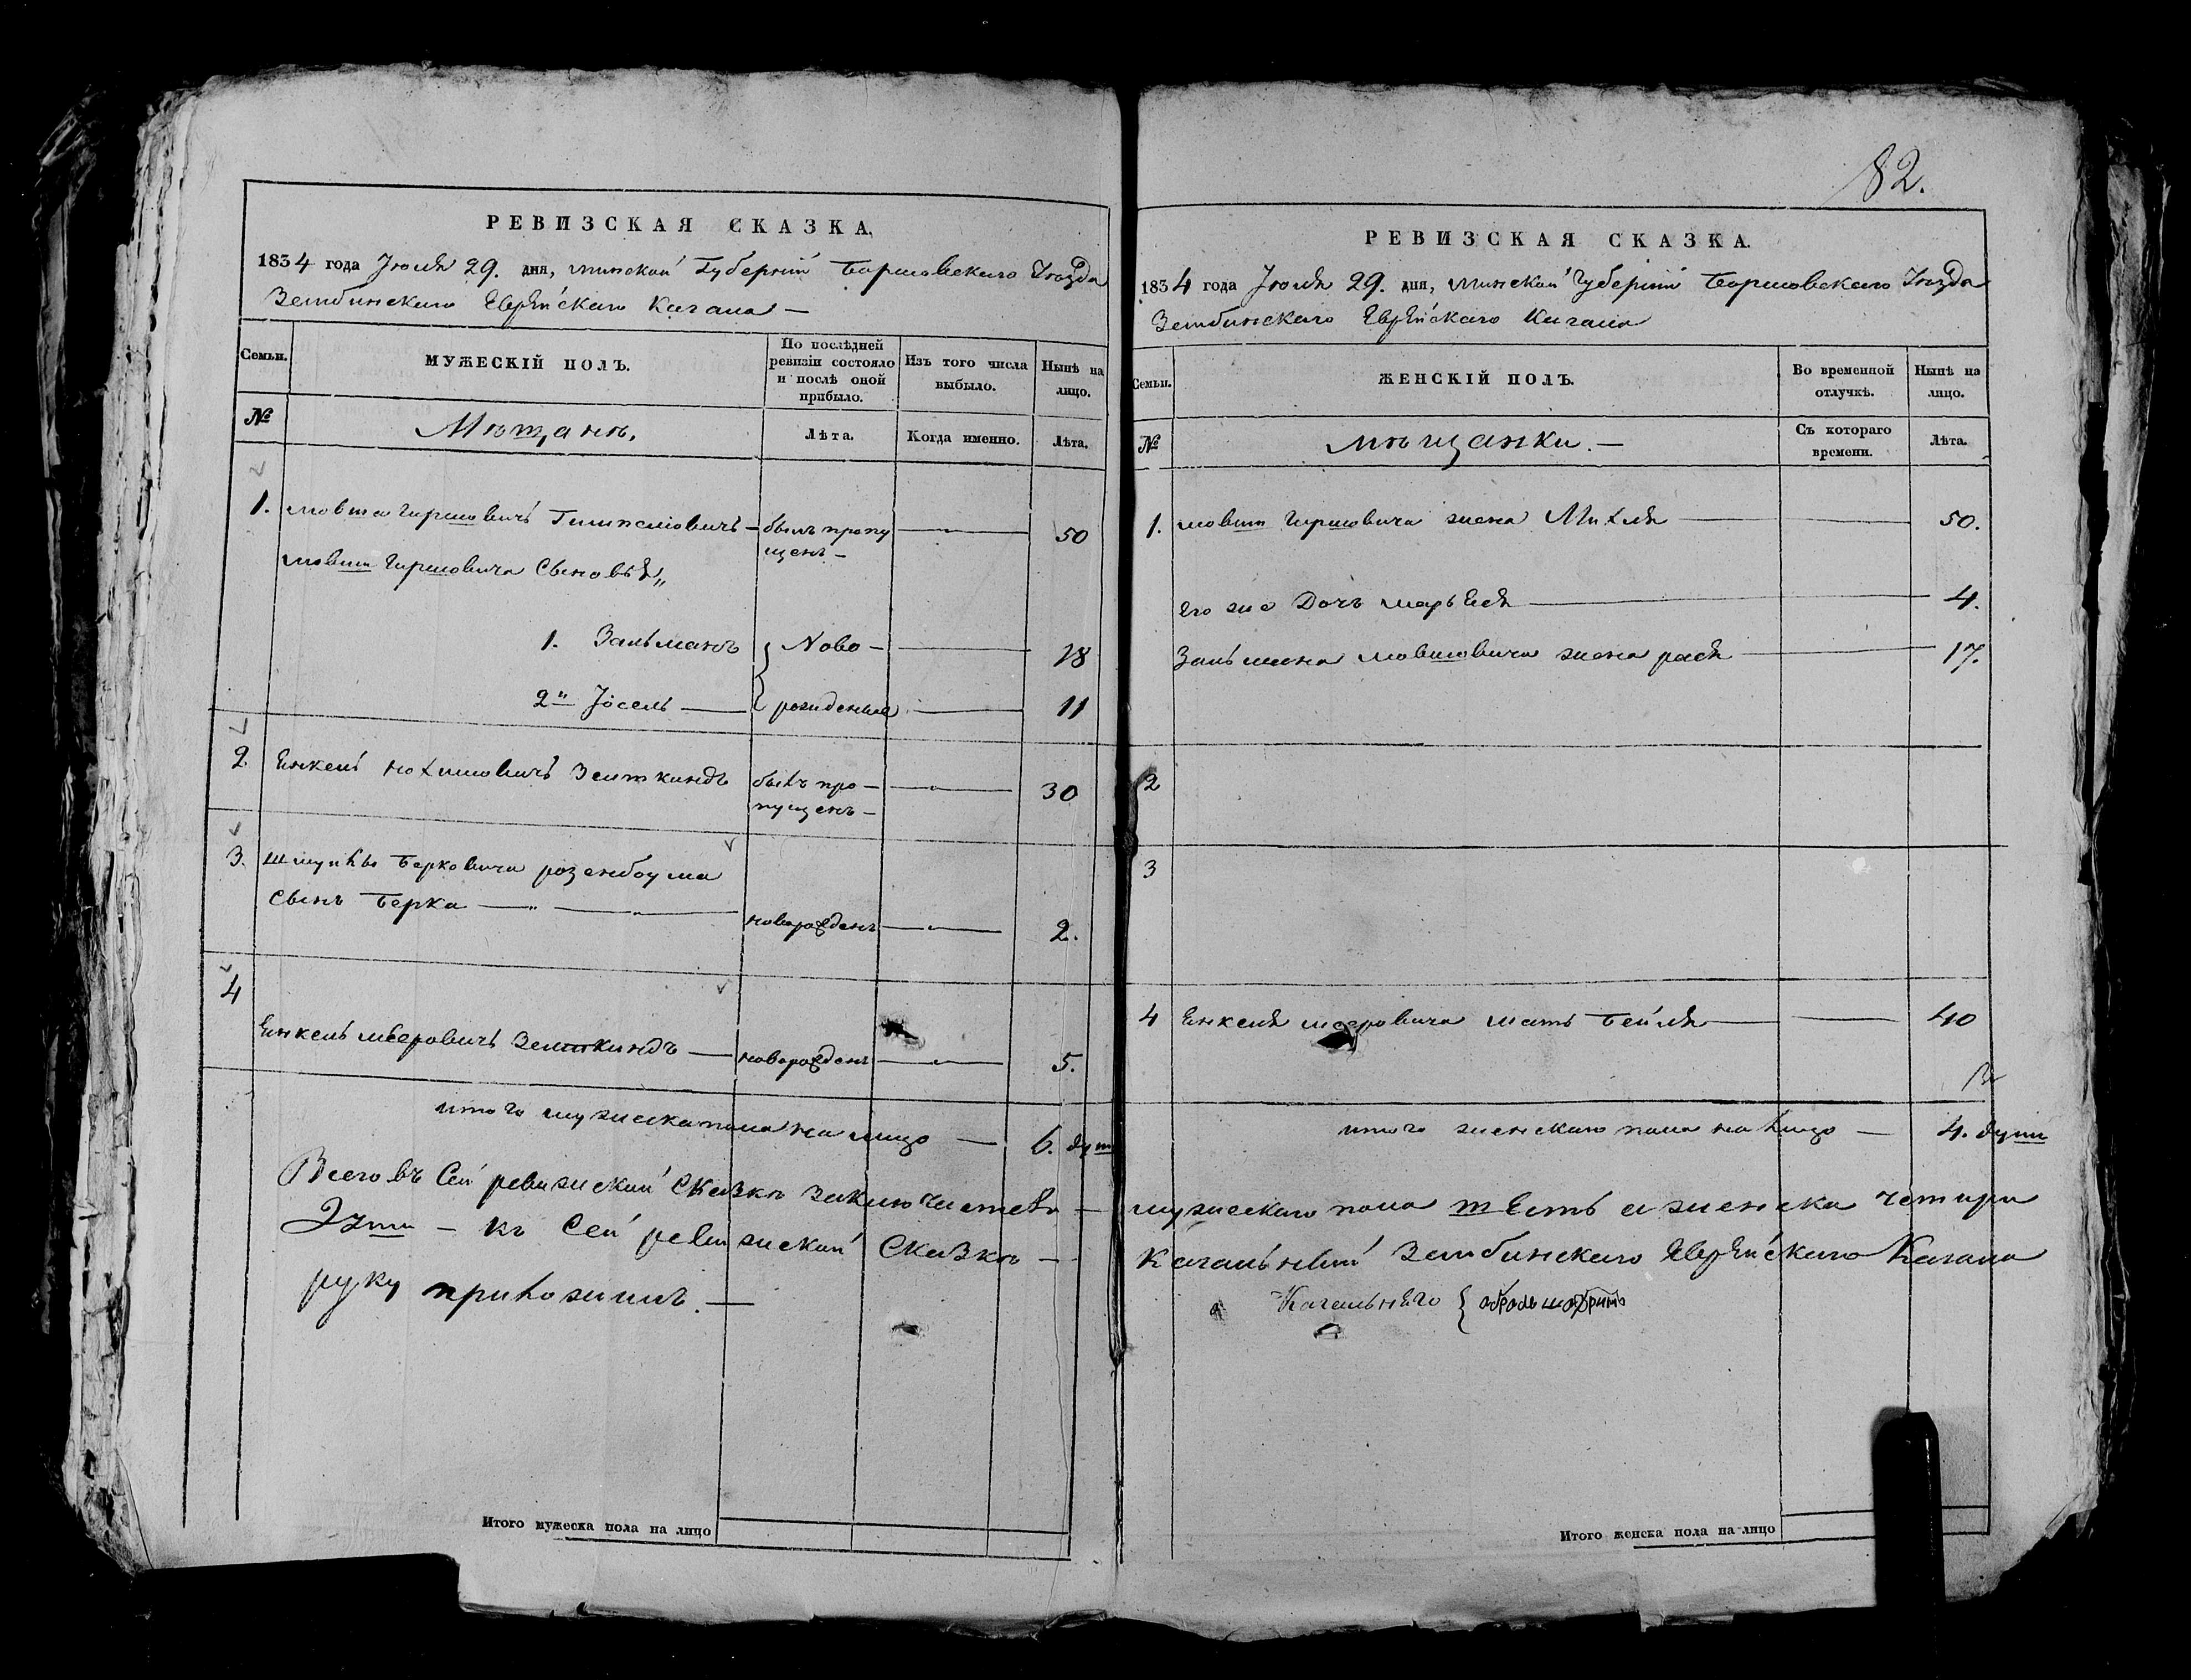 82.
РЕВИЗСКАЯ СКАЗКА.
1834 года Іюля 29. дня, минской Губерніи Борисовскаго Уѣзда
Зембинскаго Еврейскаго Кагала —
Семьи. МУЖЕСКІЙ ПОЛЪ. По послѣдней ревизіи состояло и послѣ оной прибыло. Изъ того числа выбыло. Нынѣ на лицо.
№ Мѣщанъ. Лѣта. Когда именно. Лѣта.
1. мовша гиршовичъ — былъ пропу 50
щенъ —
мовши гиршовича сыновья
1. Зальманъ Ново — 18
2й Іосель рожденые 11
2. Енкель нохимовичъ Зеликиндъ былъ про — 30
пущенъ —
3. шмуйлы берковича розенбоума
сынъ берка новорожденъ 2.
4
Енкель мееровичъ Зеликиндъ — новорожденъ 5.
итого мужеска пола на лицо — 6. душ
Всего въ сей ревизской сказкѣ заключается —
душ — къ сей ревизской сказкѣ —
руку приложилъ. —
Итого мужеска пола на лицо
РЕВИЗСКАЯ СКАЗКА.
1834 года Іюля 29. дня, минской Губерніи Борисовскаго Уѣзда
Зембинскаго Еврейскаго Кагала
Семьи. ЖЕНСКІЙ ПОЛЪ. Во временной отлучкѣ. Нынѣ на лицо.
№ мѣщанки. — Съ котораго времени. Лѣта.
1. мовши гиршовича жена Михля 50.
его же дочь марьеся 4.
Зальмана мовшовича жена рася 17.
2
3
4 Енкеля мееровича мать бейля 40
итого женскаго пола на лицо — 4. души
мужескаго пола шесть а женска четыри
Кагальный Зембинскаго Еврейскаго Кагала
Кагальнего
Итого женска пола на лицо